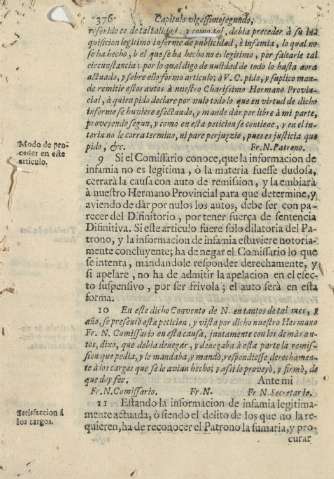 376 Capitulo vigessimosegundo,
resferido es de tal calidad, y como tal, debia preceder à su in-
quisicion legitimo informe de publicidad, è infamia, lo qual no
se ha hecho, ò el que se ha hecho no es legitimo, por faltarle tal
circunstancia: por lo qual digo de nulidad de todo lo hasta aora
actuado, y sobre esto formo articulo; à V. C. pido, y suplico man-
de remitir estos autos à nuestro Charissimo Hermano Provin-
cial, à quien pido declare por nulo todo lo que en virtud de dicho
informe se huviere efectuado, y mande dàr por libre à mi parte,
proveyendo segun, y como en esta peticion se contiene, y en el in-
terin no le corra termino, ni pare perjuyzio, pues es justicia que
pido, &c. Fr. N. Patrono.
Modo de pro-
ceder en este
articulo.
9 Si el Comissario conoce, que la informacion de
infamia no es legitima, ò la materia fuesse dudosa,
cerrarà la causa con auto de remission, y la embiarà
à nuestro Hermano Provincial para que determine, y
aviendo de dàr por nulos los autos, debe ser con pa-
recer del Difinitorio, por tener fuerça de sentencia
Difinitiva. Si este articulo fuere solo dilatoria del Pa-
trono, y la informacion de infamia estuviere notoria-
mente concluyente; ha de negar el Comissario lo que
se intenta, mandandole responder derechamente, y
si apelare, no ha de admitir la apelacion en el efec-
to suspensivo, por ser frivola; el auto serà en esta
forma.
10 En este dicho Convento de N. en tantos de tal mes, y
año, se presentò esta peticion, y vista por dicho nuestro Hermano
Fr. N. Comissario en esta causa, juntamente con los demàs au-
tos, dixo, que debia denegar, y denegaba à esta parte la remis-
sion que pedia, y le mandaba, y mandò, respondiesse derechamen-
te à los cargos que se le avian hecho; y assi lo proveyò, y firmò, de
que doy fee. Ante mi
Fr. N. Comissario. Fr. N. Secretario.
Satisfacion à
los cargos.
11 Estando la informacion de infamia legitima-
mente actuada, ò siendo el delito de los que no la re-
quieren, ha de reconocer el Patrono la sumaria, y pro-
curar